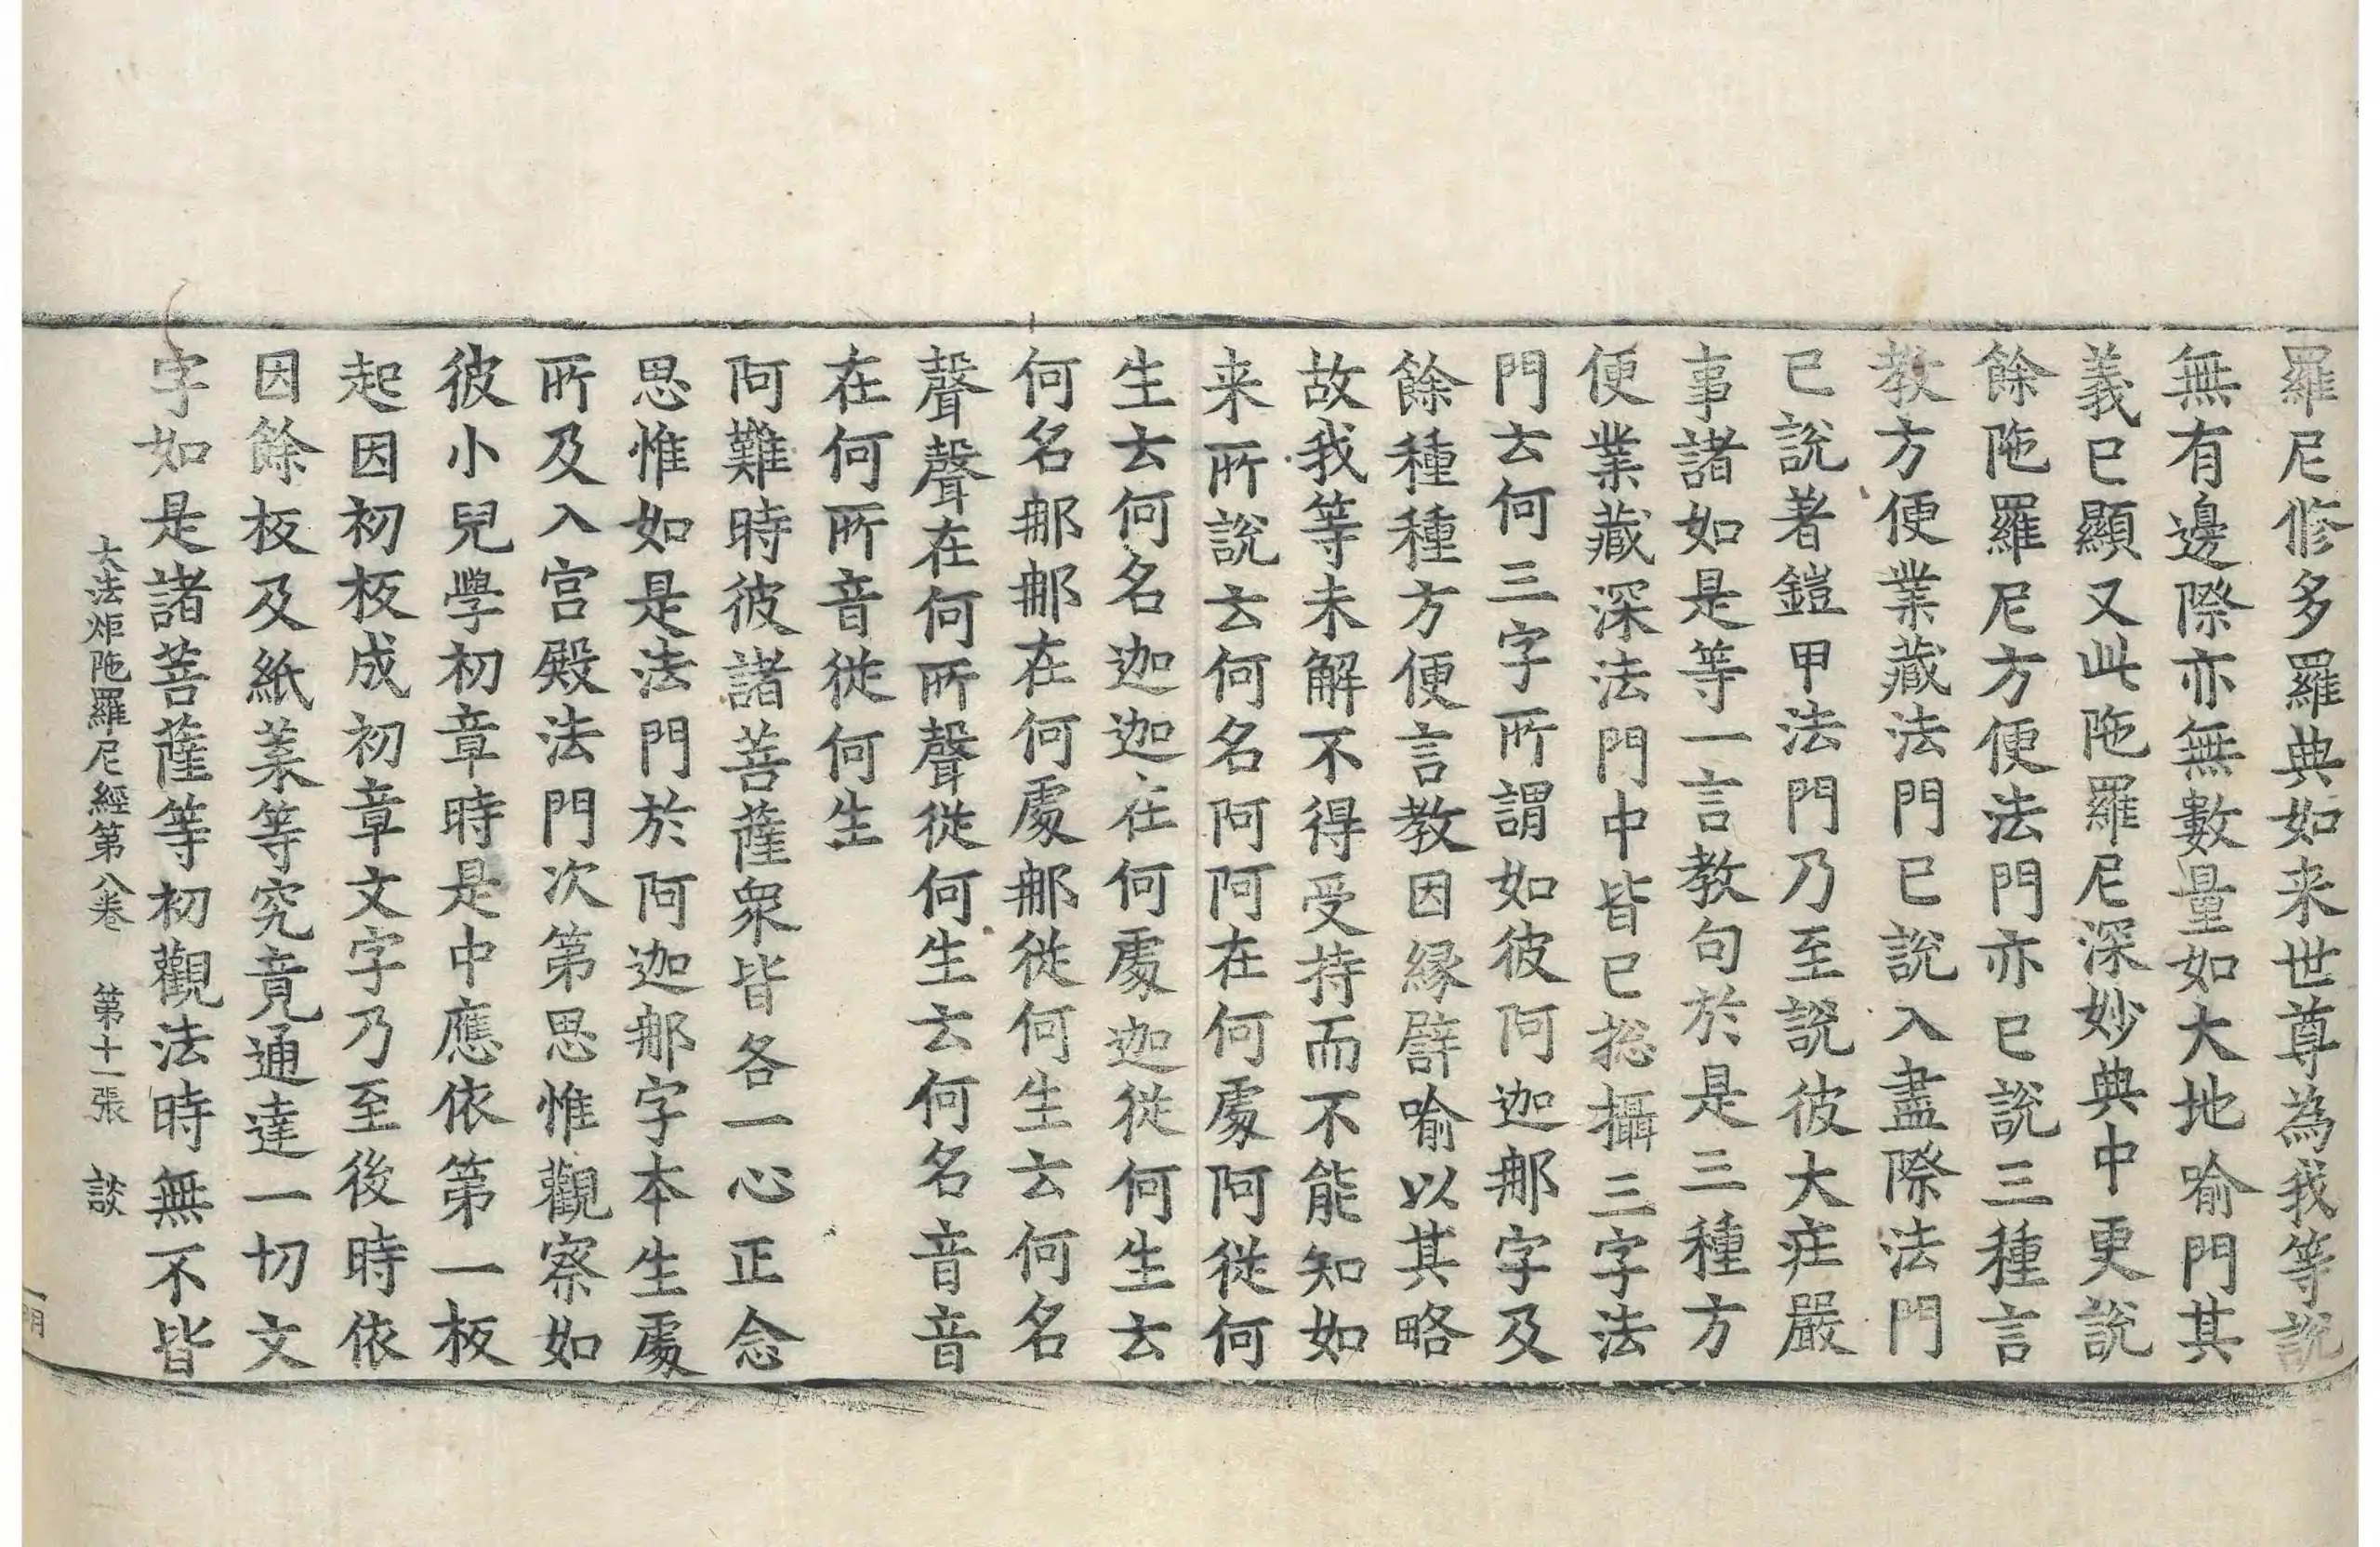 羅尼修多羅典如来世尊為我等説
無有邊際亦無數量如大地喻門其
義已顯又此陁羅尼深妙典中更説
餘陁羅尼方便法門亦已説三種言
教方便業藏法門已説入盡際法門
已説著鎧甲法門乃至説彼大莊嚴
事諸如是等一言教句於是三種方
便業藏深法門中皆已捴攝三字法
門云何三字所謂如彼阿迦那字及
餘種種方便言教因縁譬喻以其略
故我等未解不得受持而不能知如
来所説云何名阿阿在何處阿從何
生云何名迦迦在何處迦從何生云
何名那那在何處那從何生云何名
聲聲在何所聲從何生云何名音音
在何所音從何生
阿難時彼諸菩薩衆皆各一心正念
思惟如是法門於阿迦那字本生處
所及入宫殿法門次第思惟觀察如
彼小兒學初章時是中應依第一板
起因初板成初章文字乃至後時依
因餘板及紙葉等究竟通達一切文
字如是諸菩薩等初觀法時無不皆
大法炬陁羅尼經第八卷 第十一張 談